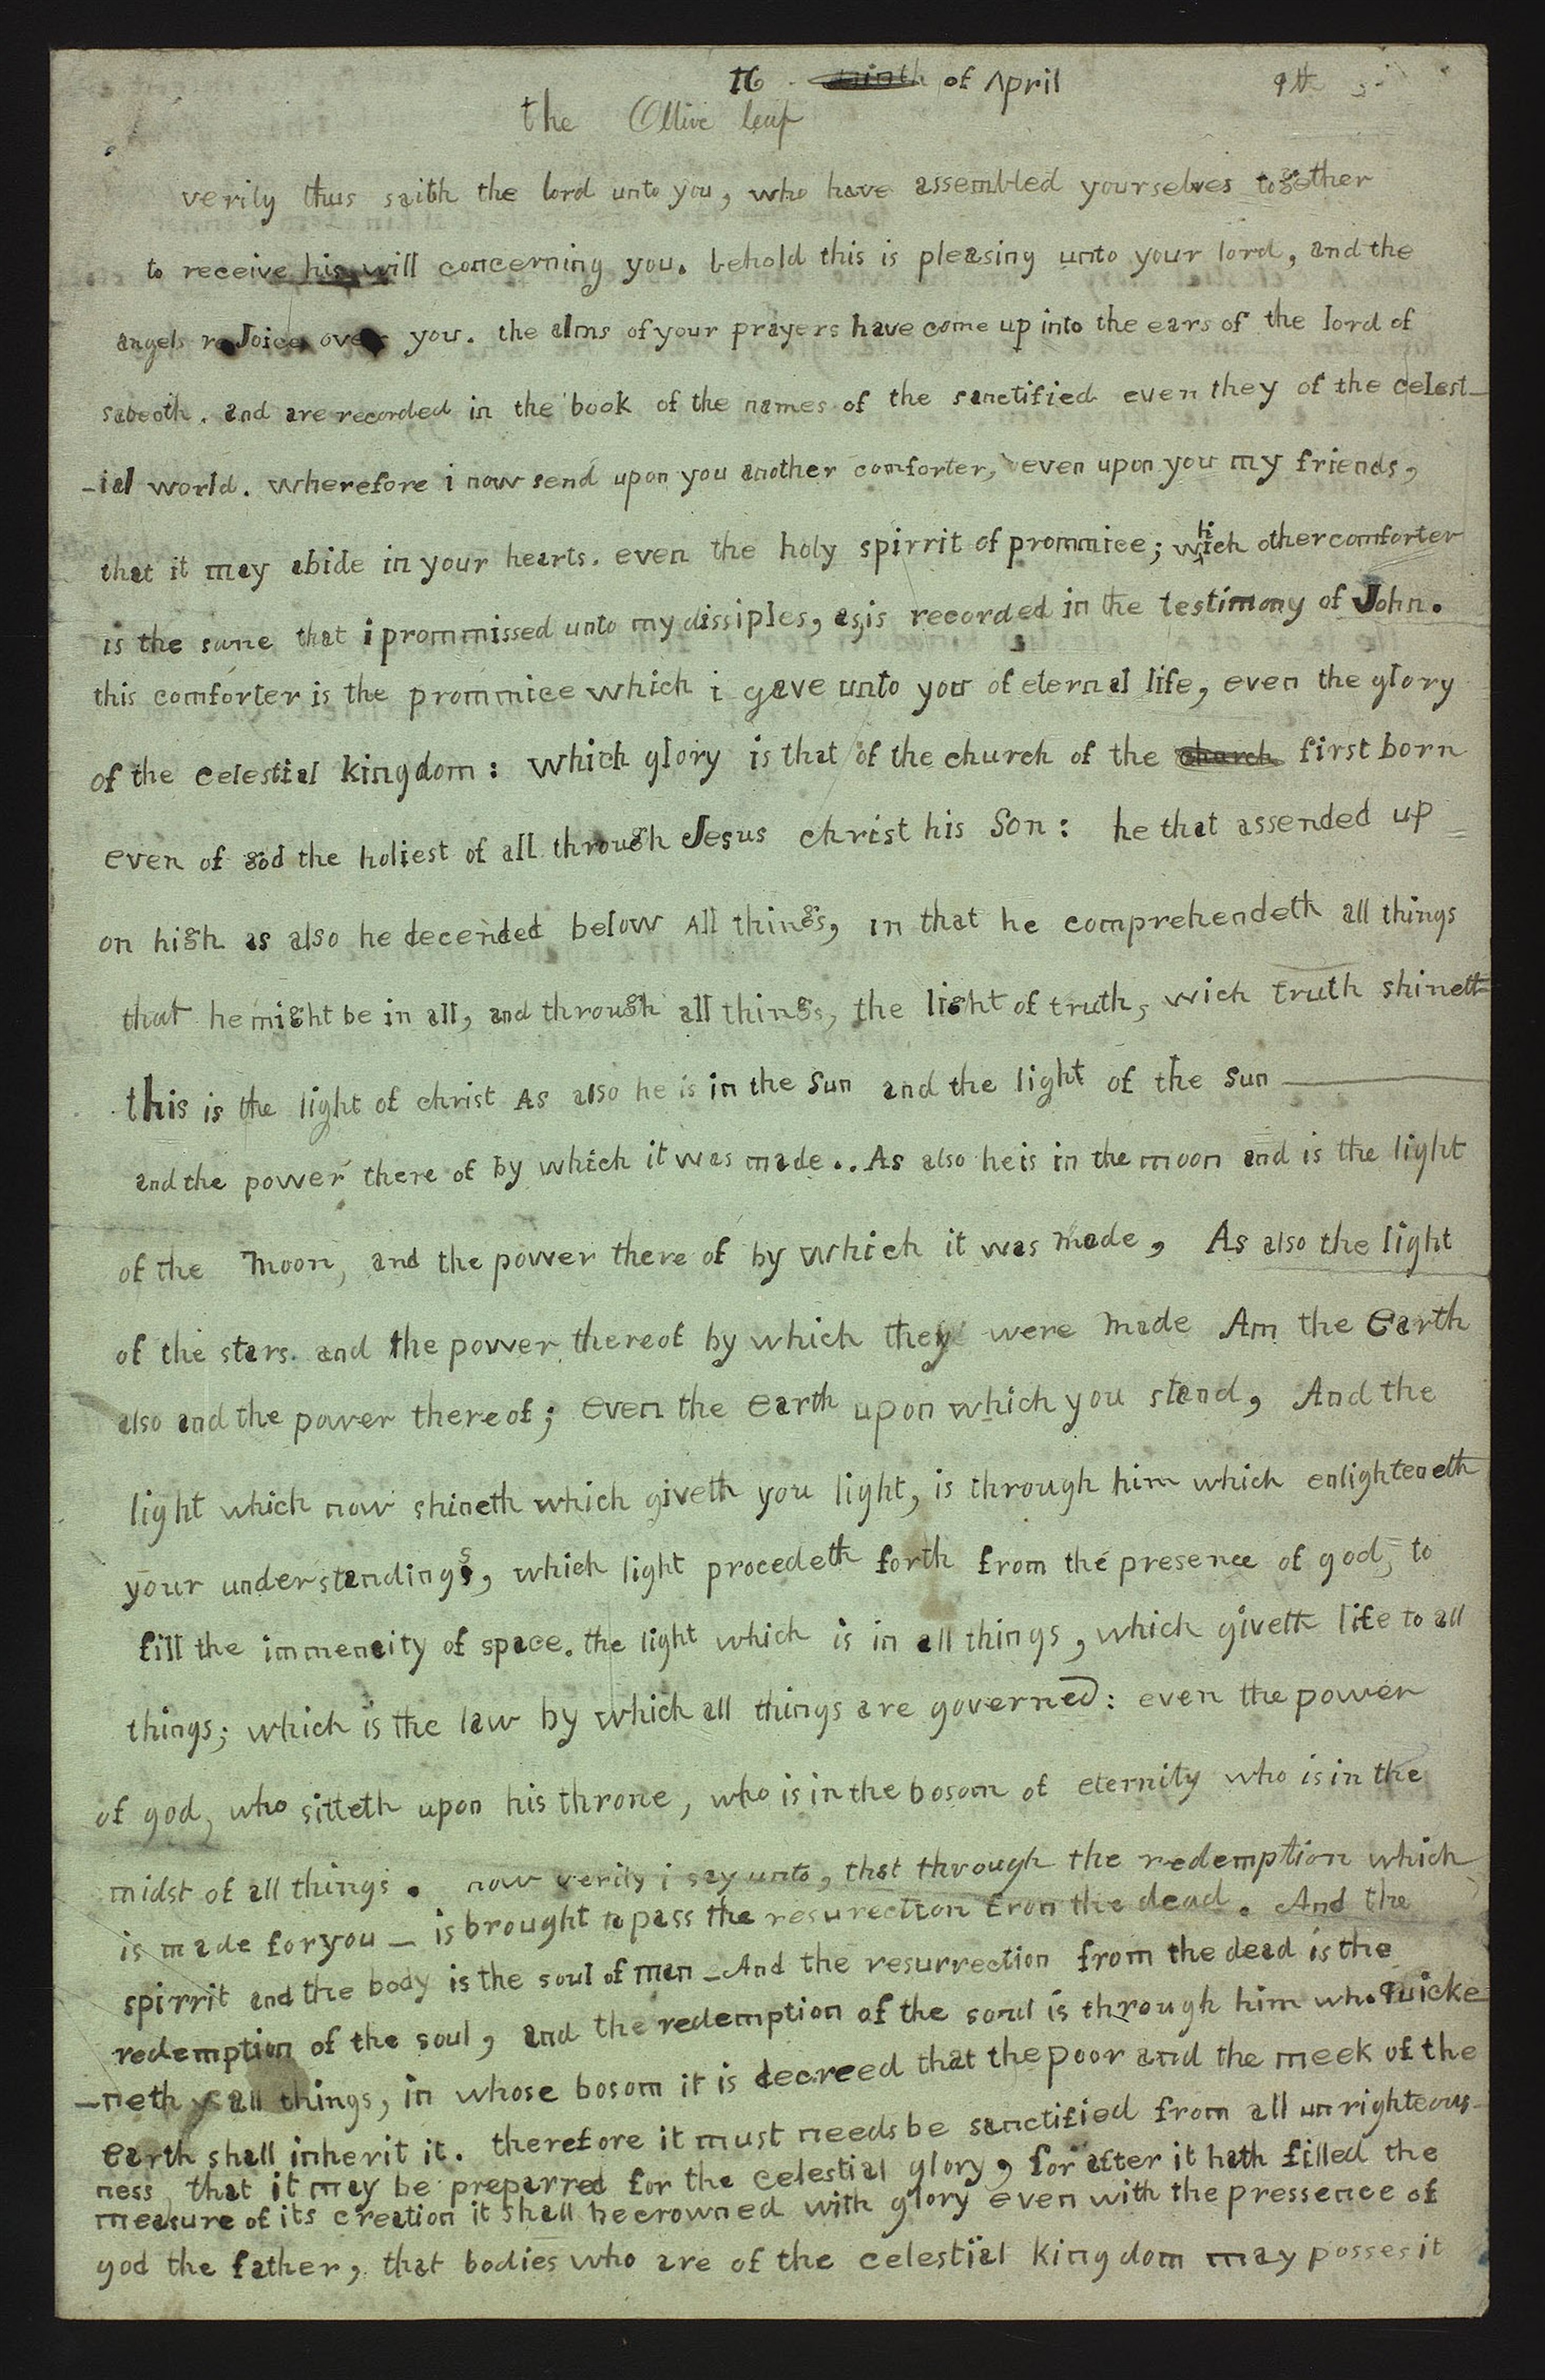 16 ninth of April 9th
the Ollive leaf
verily thus saith the lord unto you, who have assembled yourselves together
to receive his will concerning you. behold this is pleasing unto your lord, and the
angels reJoice over you. the alms of your prayers have come up into the ears of the lord of
sabeoth. and are recorded in the book of the names of the sanctified even they of the celest-
-ial world. wherefore i now send upon you another comforter, even upon you my friends,
that it may abide in your hearts. even the holy spirrit of prommice; which other comforter
is the same that i prommissed unto my dissiples, as is recorded in the testimony of John.
this comforter is the prommice which i gave unto you of eternal life, even the glory
of the celestial kingdom: which glory is that of the church of the church first born
even of god the holiest of all through Jesus christ his Son: he that assended up
on high as also he decended below All things, in that he comprehendeth all things
that he might be in all, and through all things, the light of truth, wich truth shineth
this is the light of christ As also he is in the Sun and the light of the Sun
and the power there of by which it was made.. As also he is in the moon and is the light
of the Moon, and the power there of by which it was Made, As also the light
of the stars. and the power thereof by which they were Made Am the Earth
also and the power thereof; even the earth upon which you stand, And the
light which now shineth which giveth you light, is through him which enlighteneth
your understandings, which light procedeth forth from the presence of god, to
fill the immencity of space. the light which is in all things, which giveth life to all
things; which is the law by which all things are governed: even the power
of god, who sitteth upon his throne, who is in the bosom of eternity who is in the
midst of all things. now verily i say unto, that through the redemption which
is made for you - is brought to pass the resurection from the dead. And the
spirrit and the body is the soul of man - And the resurrection from the dead is the
redemption of the soul, and the redemption of the soul is through him who Quicke
-neth all things, in whose bosom it is decreed that the poor and the meek of the
earth shall inherit it. therefore it must needs be sanctified from all unrighteous-
ness, that it may be preparred for the celestial glory, for after it hath filled the
measure of its creation it shall be crowned with glory even with the pressence of
god the father, that bodies who are of the celestial kingdom may posses it